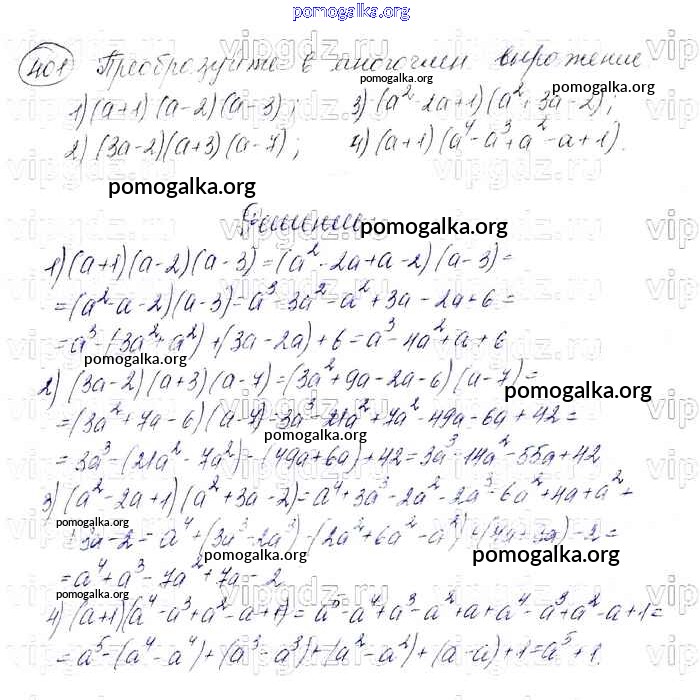 pomogalka.org
401 Преобразуйте в многочлен выражение
1) (a+1)(a-2)(a-3); 3) (a² 2a+1)(a²+3a-2);
2) (3a-2)(a+3)(a-7); 4) (a+1)(a⁴-a³+a²-a+1).
pomogalka.org
Решение
pomogalka.org
1) (a+1)(a-2)(a-3)=(a²-2a+a-2)(a-3)=
=(a²-a-2)(a-3)=a³-3a²-a²+3a-2a+6=
=a³-(3a²+a²)+(3a-2a)+6=a³-4a²+a+6
pomogalka.org
2) (3a-2)(a+3)(a-7)=(3a²+9a-2a-6)(a-7)=
pomogalka.org
=(3a²+7a-6)(a-7)=3a³-21a²+7a²-49a-6a+42=
pomogalka.org
=3a³-(21a²-7a²)-(49a+6a)+42=3a³-14a²-55a+42
3) (a²-2a+1)(a²+3a-2)=a⁴+3a³-2a²-2a³-6a²+4a+a²+
pomogalka.org
+3a-2=a⁴+(3a³-2a³)-(2a²+6a²-a²)+(4a+3a)-2=
pomogalka.org
=a⁴+a³-7a²+7a-2
pomogalka.org
4) (a+1)(a⁴-a³+a²-a+1)=a⁵-a⁴+a³-a²+a+a⁴-a³+a²-a+1=
=a⁵-(a⁴-a⁴)+(a³-a³)+(a²-a²)+(a-a)+1=a⁵+1.